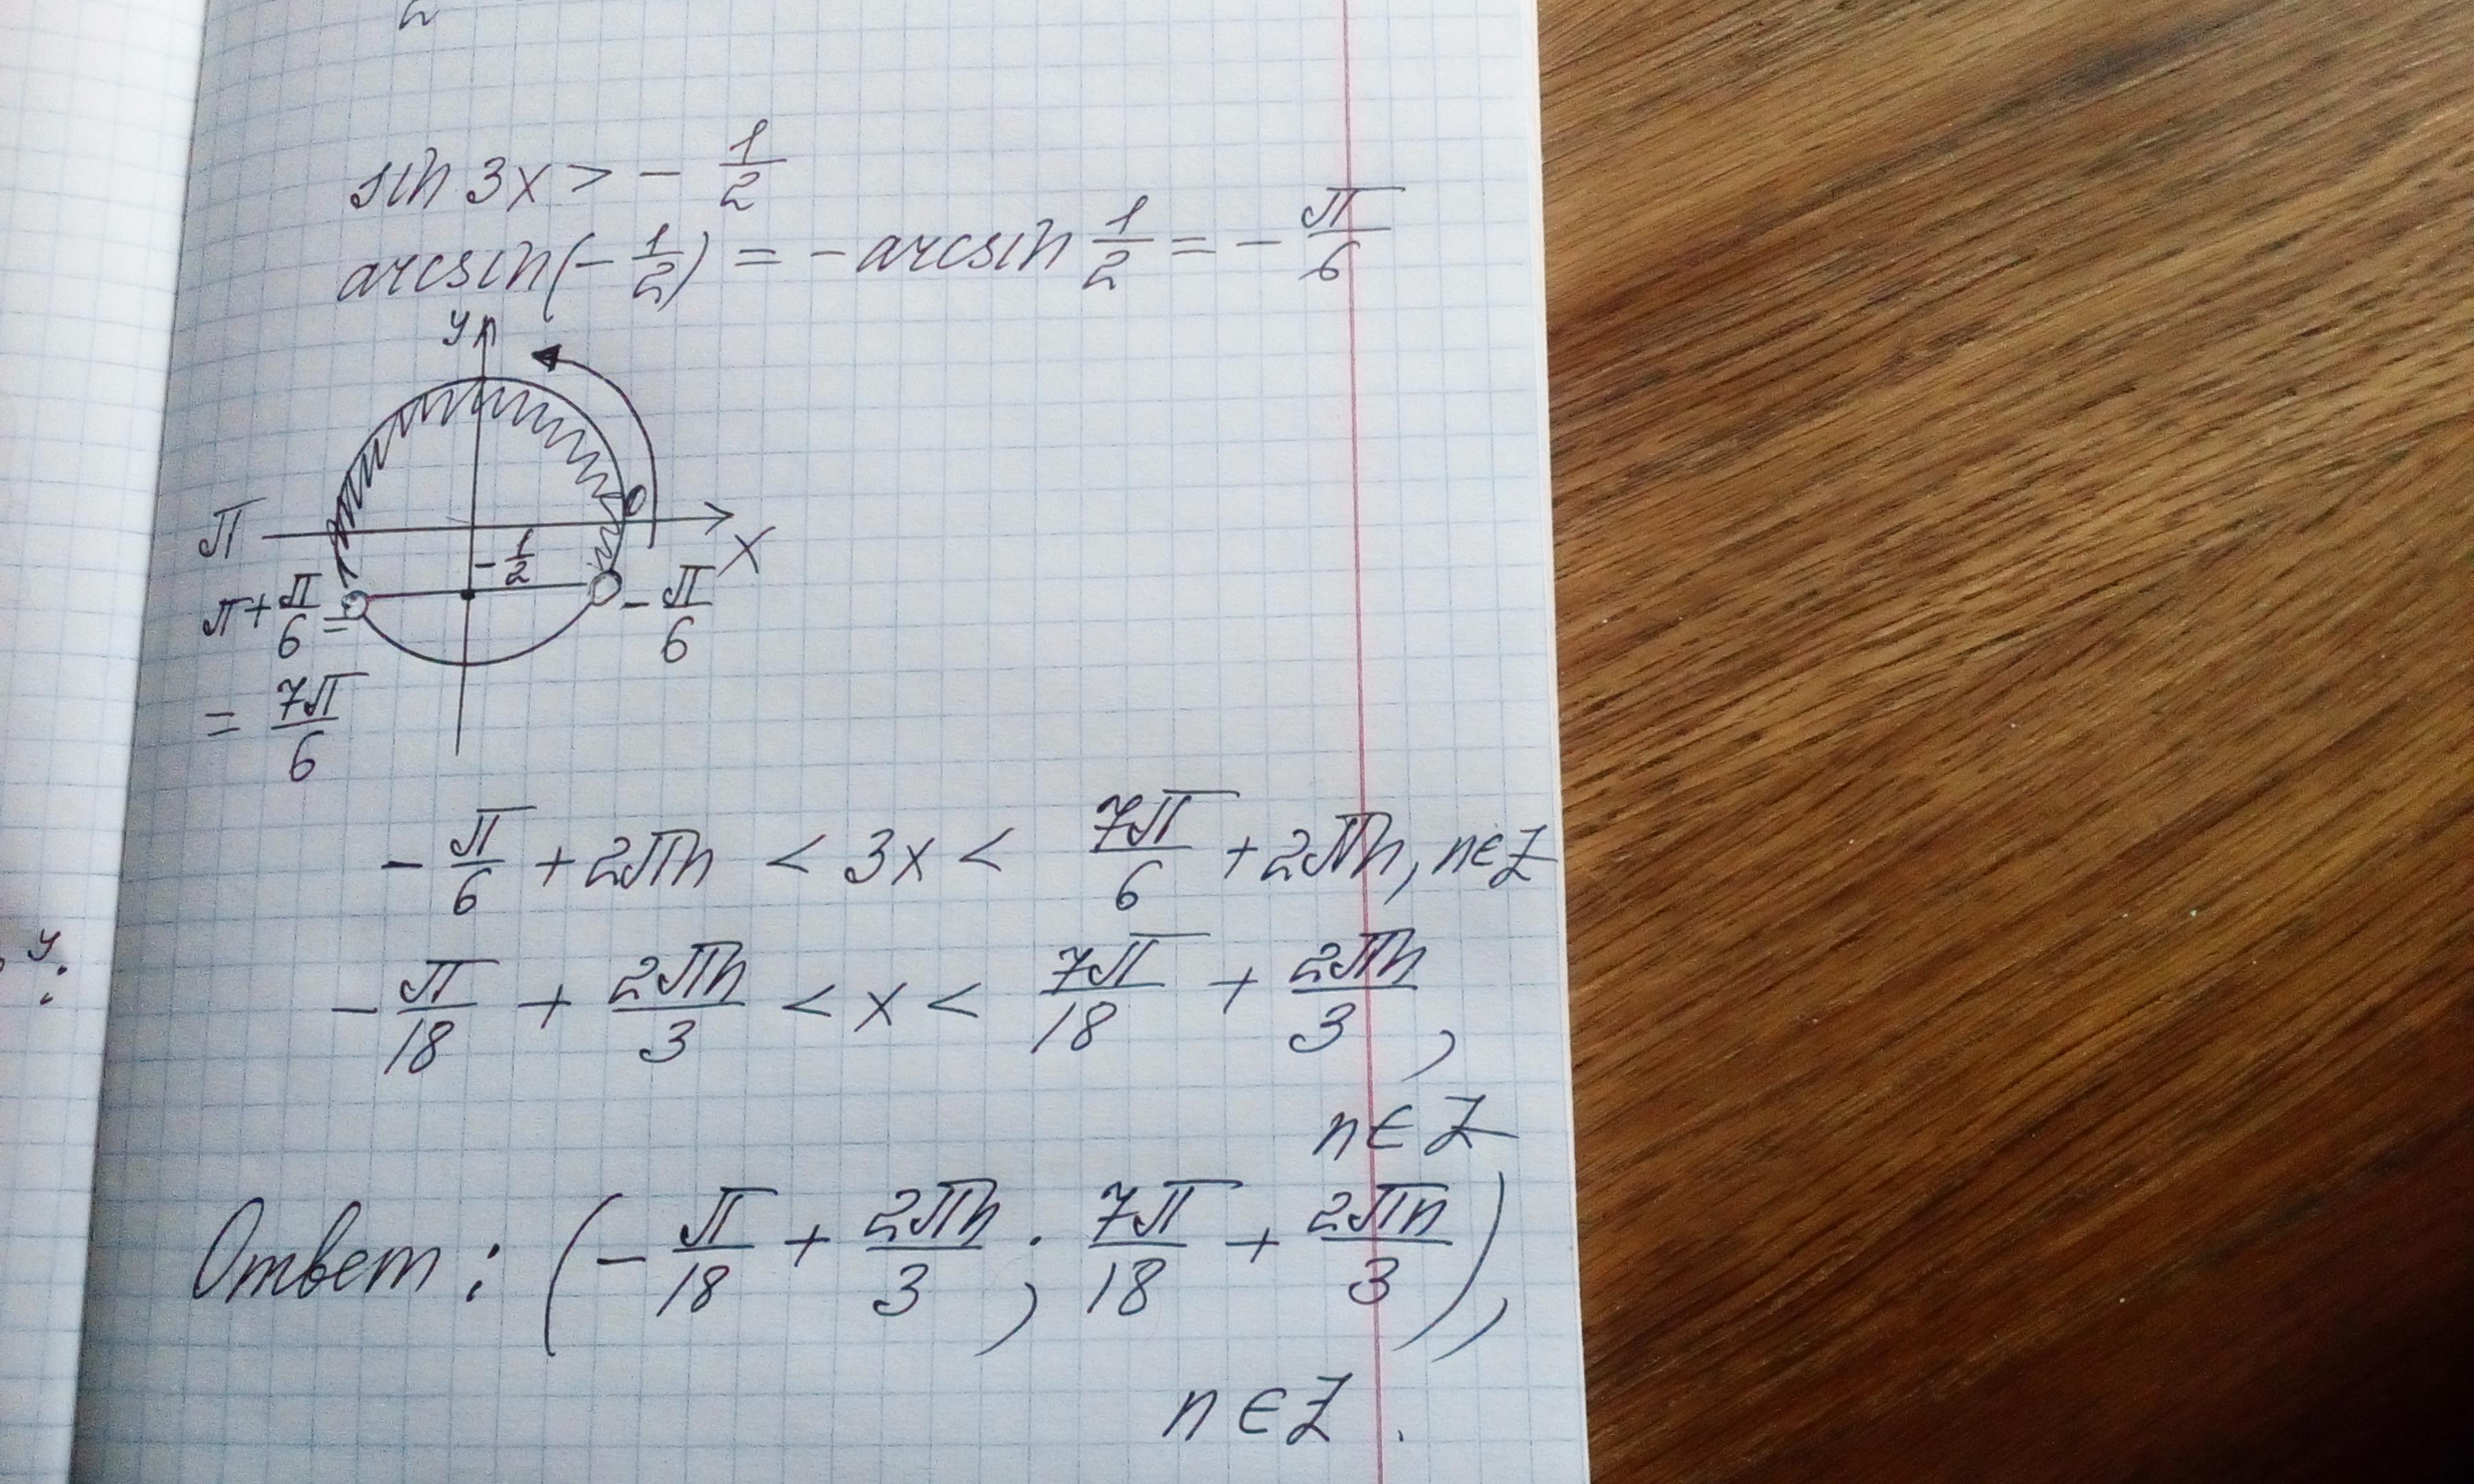 sin 3x > - 1/2
arcsin(- 1/2) = - arcsin 1/2 = - π/6
y
π
0
x
- 1/2
π + π/6 =
- π/6
= 7π/6
- π/6 + 2πn < 3x < 7π/6 + 2πn, n∈Z
- π/18 + 2πn/3 < x < 7π/18 + 2πn/3,
n∈Z
Ответ: (- π/18 + 2πn/3 ; 7π/18 + 2πn/3),
n∈Z.